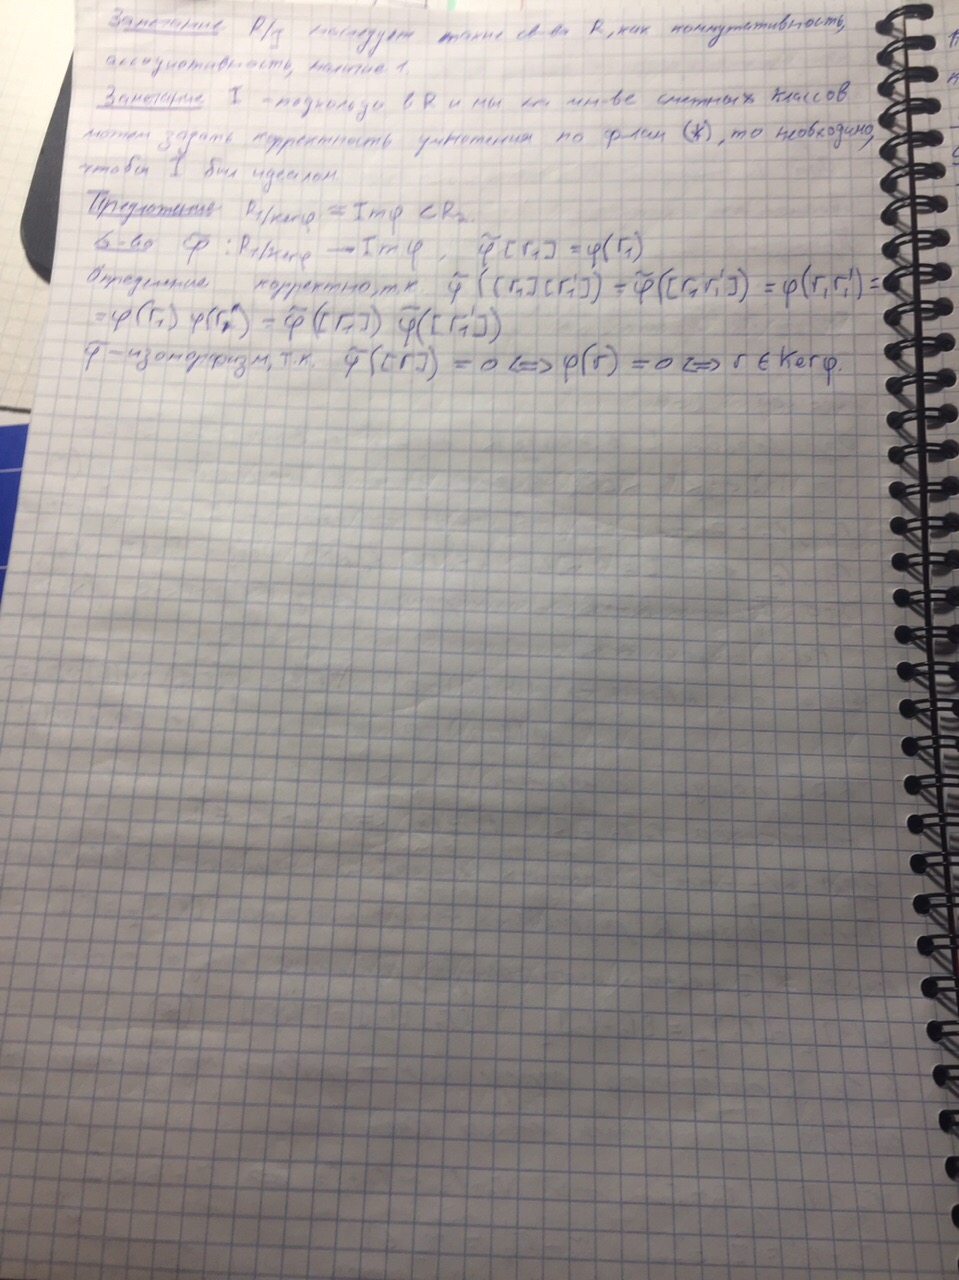 Замечание R/I наследует такие св-ва R, как коммутативность,
ассоциативность, наличие 1.
Замечание I - подкольцо в R и мы на мн-ве смежных классов
можем задать корректность умножения по ф-лам (*), то необходимо,
чтобы I был идеалом.
Предложение R₁/Kerφ ≅ Imφ ⊂ R₂.
Д-во φ̃ : R₁/Kerφ → Imφ, φ̃[r₁] = φ(r₁)
Определение корректно, т.к. φ̃([r₁][r₁']) = φ̃([r₁r₁']) = φ(r₁r₁') =
= φ(r₁) φ(r₁') = φ̃([r₁]) φ̃([r₁'])
φ̃ - изоморфизм, т.к. φ̃([r]) = 0 <=> φ(r) = 0 <=> r ∈ Kerφ.